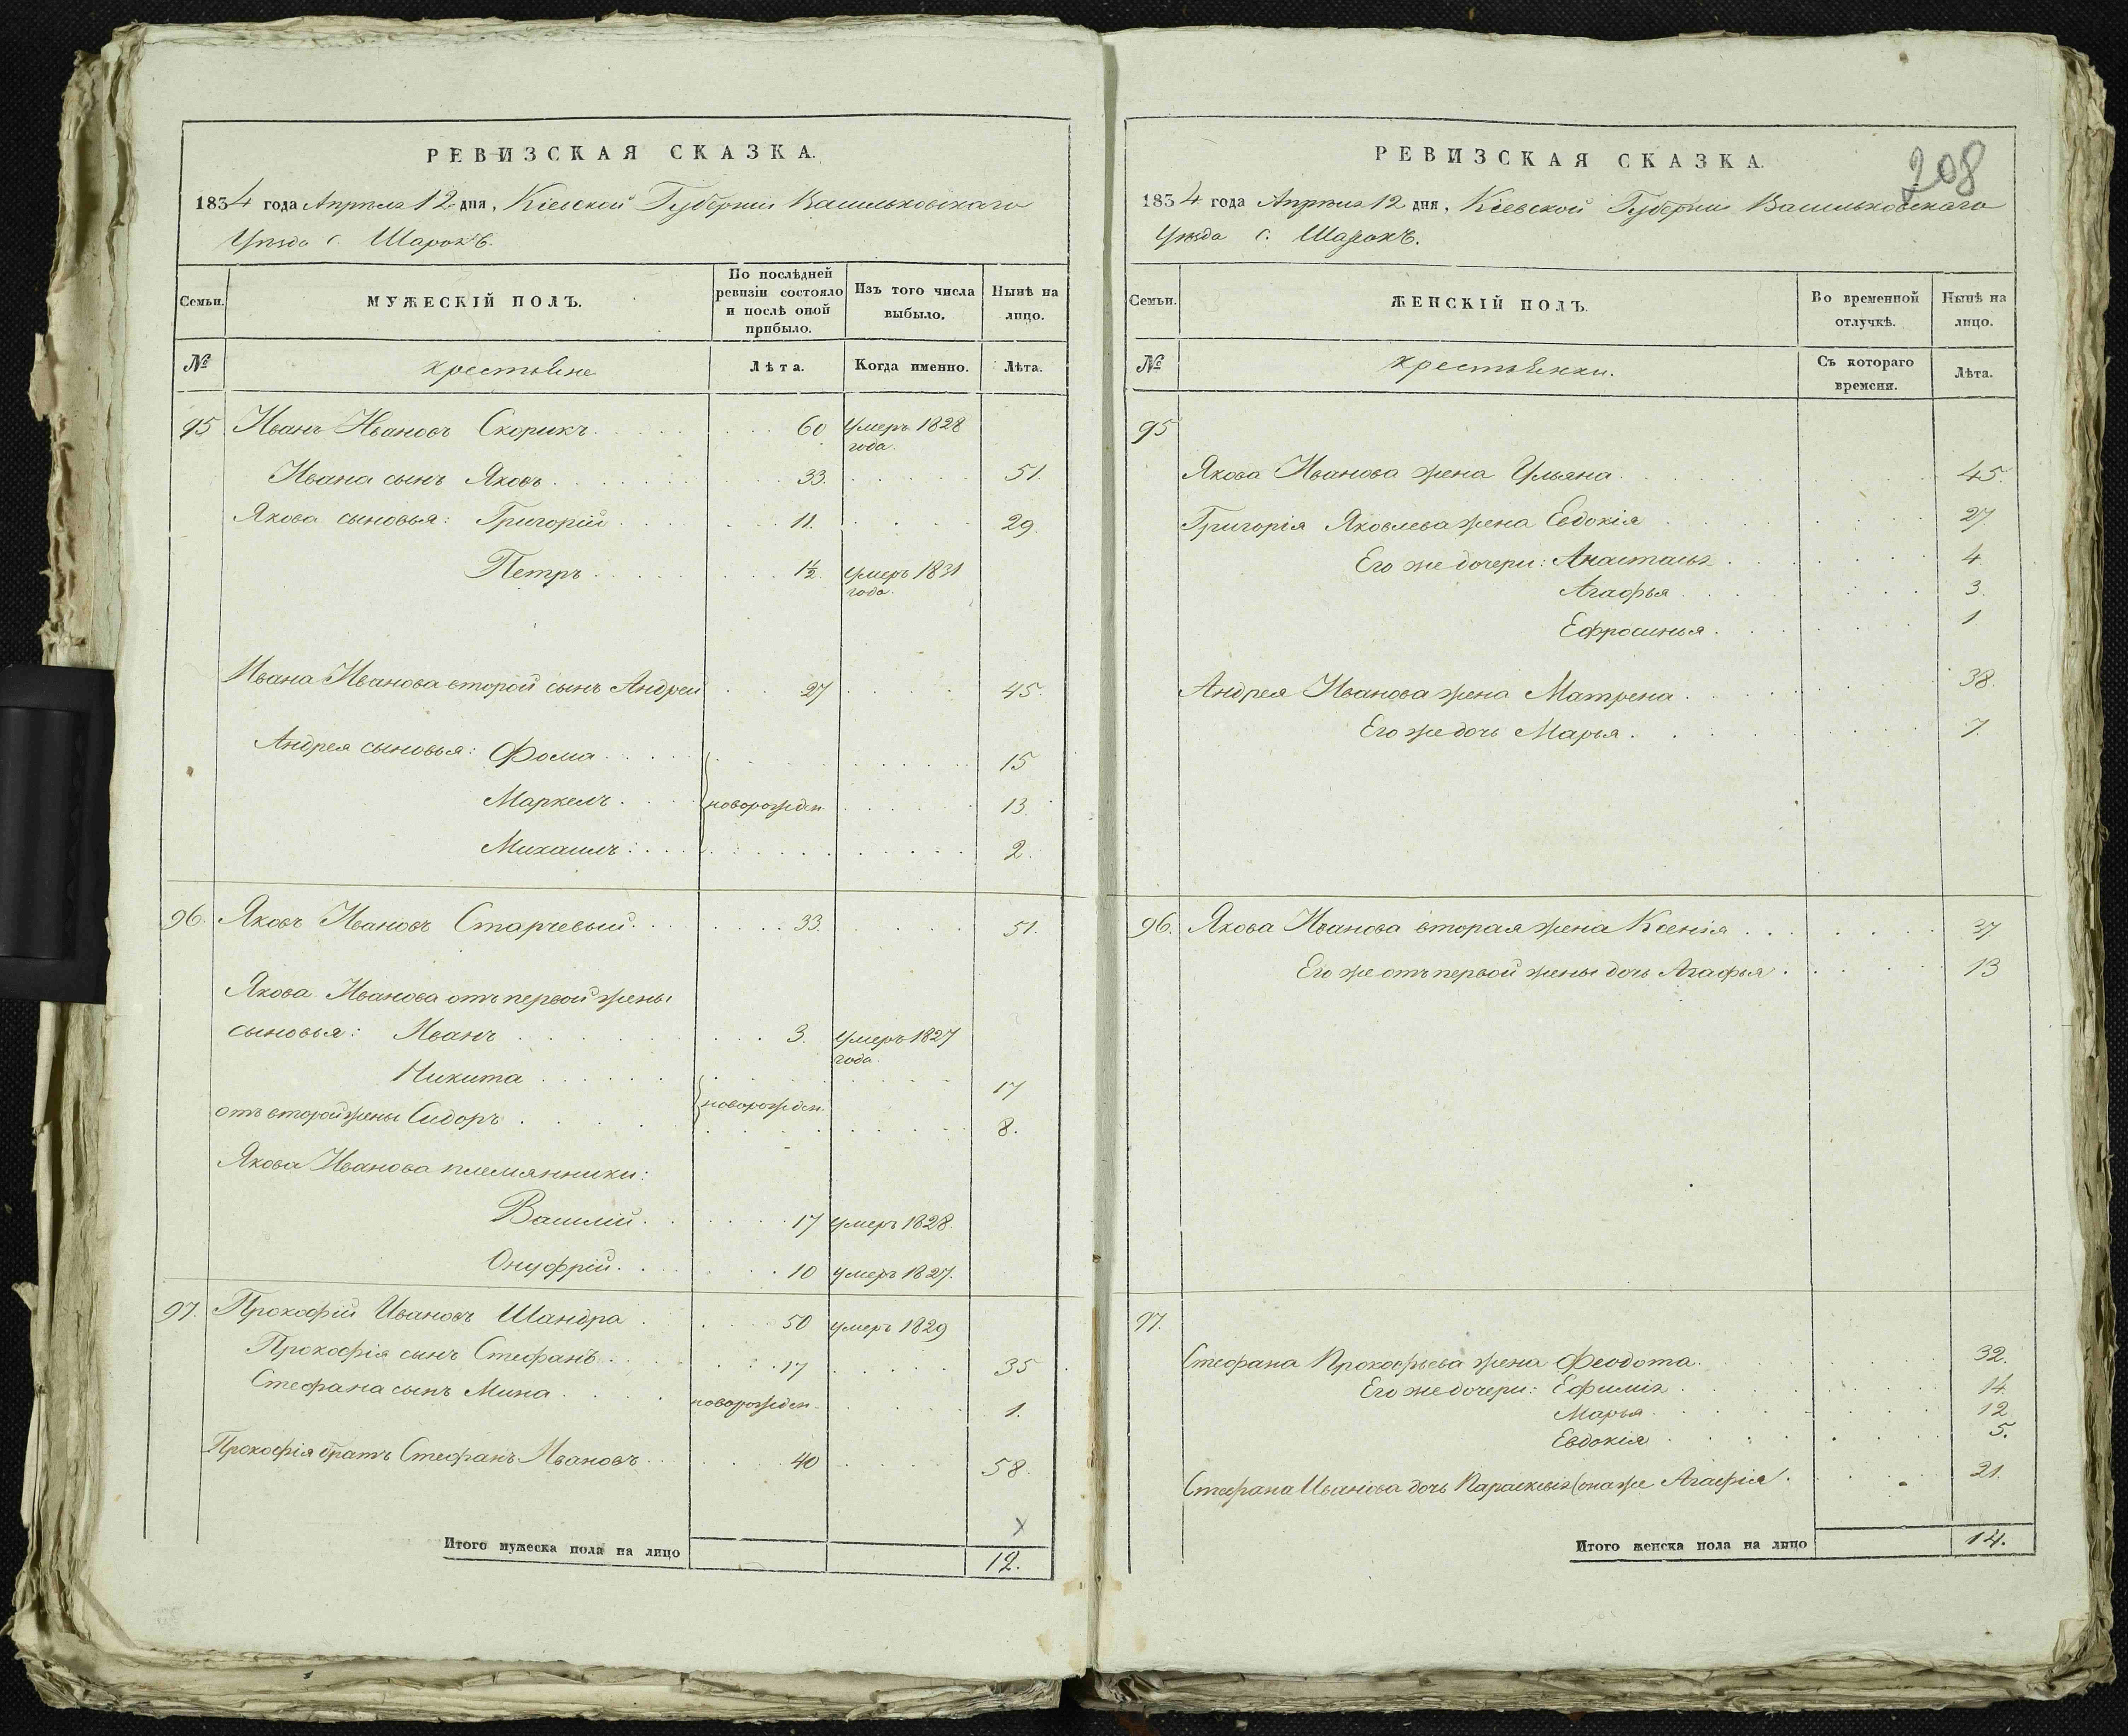 РЕВИЗСКАЯ СКАЗКА.
1834 года Апрѣля 12 дня, Кіевской Губерніи Васильковскаго
Уѣзда с. Шарокъ.
Семьи.
МУЖЕСКІЙ ПОЛЪ.
По послѣдней ревизіи состояло и послѣ оной прибыло.
Изъ того числа выбыло.
Нынѣ на лицо.
№ крестьяне Лѣта. Когда именно. Лѣта.
95 Иванъ Ивановъ Скорикъ 60 умеръ 1828
года.
Ивана сынъ Яковъ 33. 51.
Якова сыновья: Григорій 11. 29.
Петръ 1½ умеръ 1831
года.
Ивана Иванова второй сынъ Андрей 27 45.
Андрея сыновья: Фома 15
Маркелъ новорожден. 13
Михаилъ 2.
96. Яковъ Ивановъ Старчевый 33. 51.
Якова Иванова отъ первой жены
сыновья: Иванъ 3. умеръ 1827
года.
Никита 17
новорожден.
отъ второй жены Сидоръ 8.
Якова Иванова племянники:
Василій 17 умеръ 1828.
Онуфрій 10 умеръ 1827.
97. Прокофій Ивановъ Шандра 50 умеръ 1829
Прокофія сынъ Стефанъ 17 35
Стефана сынъ Мина новорожден. 1.
Прокофія братъ Стефанъ Ивановъ 40 58.
х
Итого мужеска пола на лицо 12.
208
РЕВИЗСКАЯ СКАЗКА.
1834 года Апрѣля 12 дня, Кіевской Губерніи Васильковскаго
Уѣзда с. Шарокъ.
Семьи.
ЖЕНСКІЙ ПОЛЪ.
Во временной отлучкѣ.
Нынѣ на лицо.
№ крестьянки. Съ котораго времени. Лѣта.
95
Якова Иванова жена Ульяна 45.
Григорія Яковлева жена Евдокія 27
Его же дочери: Анастасія 4
Агафья 3.
Ефросинья 1
Андрея Иванова жена Матрена 38.
Его же дочь Марья 7
96. Якова Иванова вторая жена Ксенія 37
Его же отъ первой жены дочь Агафья 13
97.
Стефана Прокофьева жена Феодота 32.
Его же дочери: Ефимія 14
Марья 12
Евдокія 5.
Стефана Иванова дочь Параскевія (она же Агафія) 21.
Итого женска пола на лицо 14.